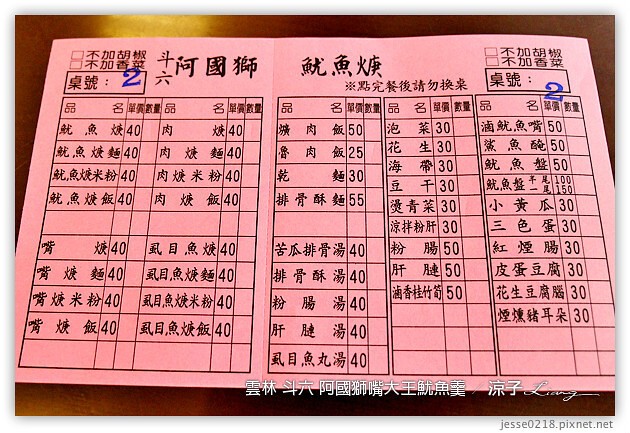 □不加胡椒
□不加香菜
桌號： 2
斗六 阿國獅 魷魚焿
※點完餐後請勿換桌
□不加胡椒
□不加香菜
桌號： 2
品名 單價 數量 品名 單價 數量
魷魚焿 40 肉焿 40
魷魚焿麵 40 肉焿麵 40
魷魚焿米粉 40 肉焿米粉 40
魷魚焿飯 40 肉焿飯 40
嘴焿 40 虱目魚焿 40
嘴焿麵 40 虱目魚焿麵 40
嘴焿米粉 40 虱目魚焿米粉 40
嘴焿飯 40 虱目魚焿飯 40
品名 單價 數量
爌肉飯 50
魯肉飯 25
乾麵 30
排骨酥麵 55
苦瓜排骨湯 40
排骨酥湯 40
粉腸湯 40
肝腱湯 40
虱目魚丸湯 40
品名 單價 數量
泡菜 30
花生 30
海帶 30
豆干 30
燙青菜 30
涼拌粉肝 30
粉腸 50
肝腱 50
滷香桂竹筍 50
品名 單價 數量
滷魷魚嘴 50
鯊魚醃 50
魷魚盤 50
魷魚盤 半尾 100 一尾 150
小黃瓜 30
三色蛋 30
紅煙腸 30
皮蛋豆腐 30
花生豆腐腦 30
煙燻豬耳朵 30
雲林 斗六 阿國獅嘴大王魷魚羹 / 涼子 Liang
jesse0218.pixnet.net